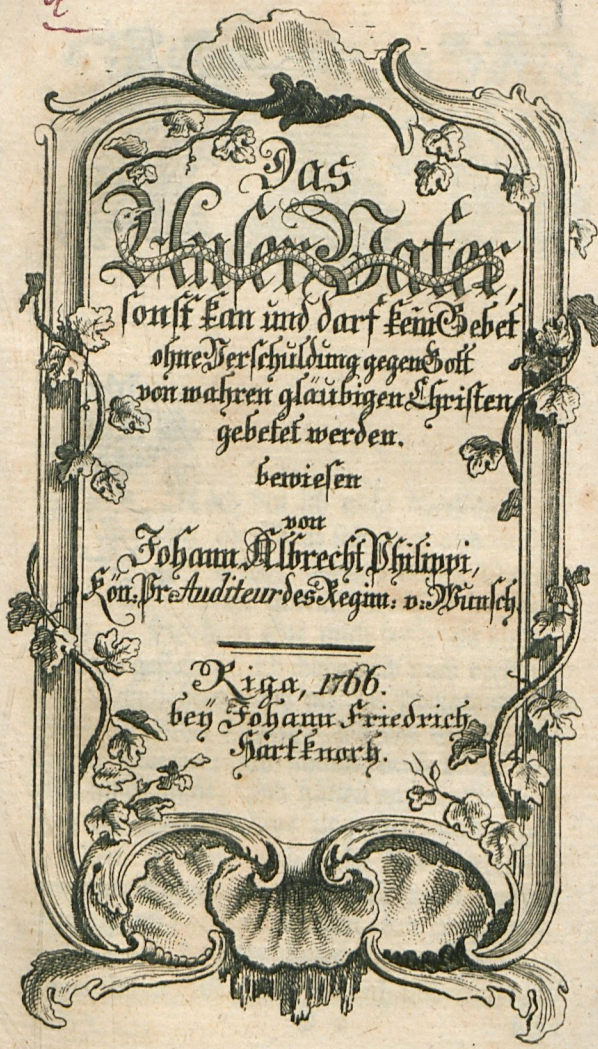 Das
Unser Vater,
sonst kan und darf kein Gebet
ohne Verschuldung gegen Gott
von wahren gläubigen Christen
gebetet werden.
bewiesen
von
Johann Albrecht Philippi,
Kön: Pr: Auditeur des Regim: v: Wunsch.
Riga, 1766.
beÿ Johann Friedrich
Hartknoch.